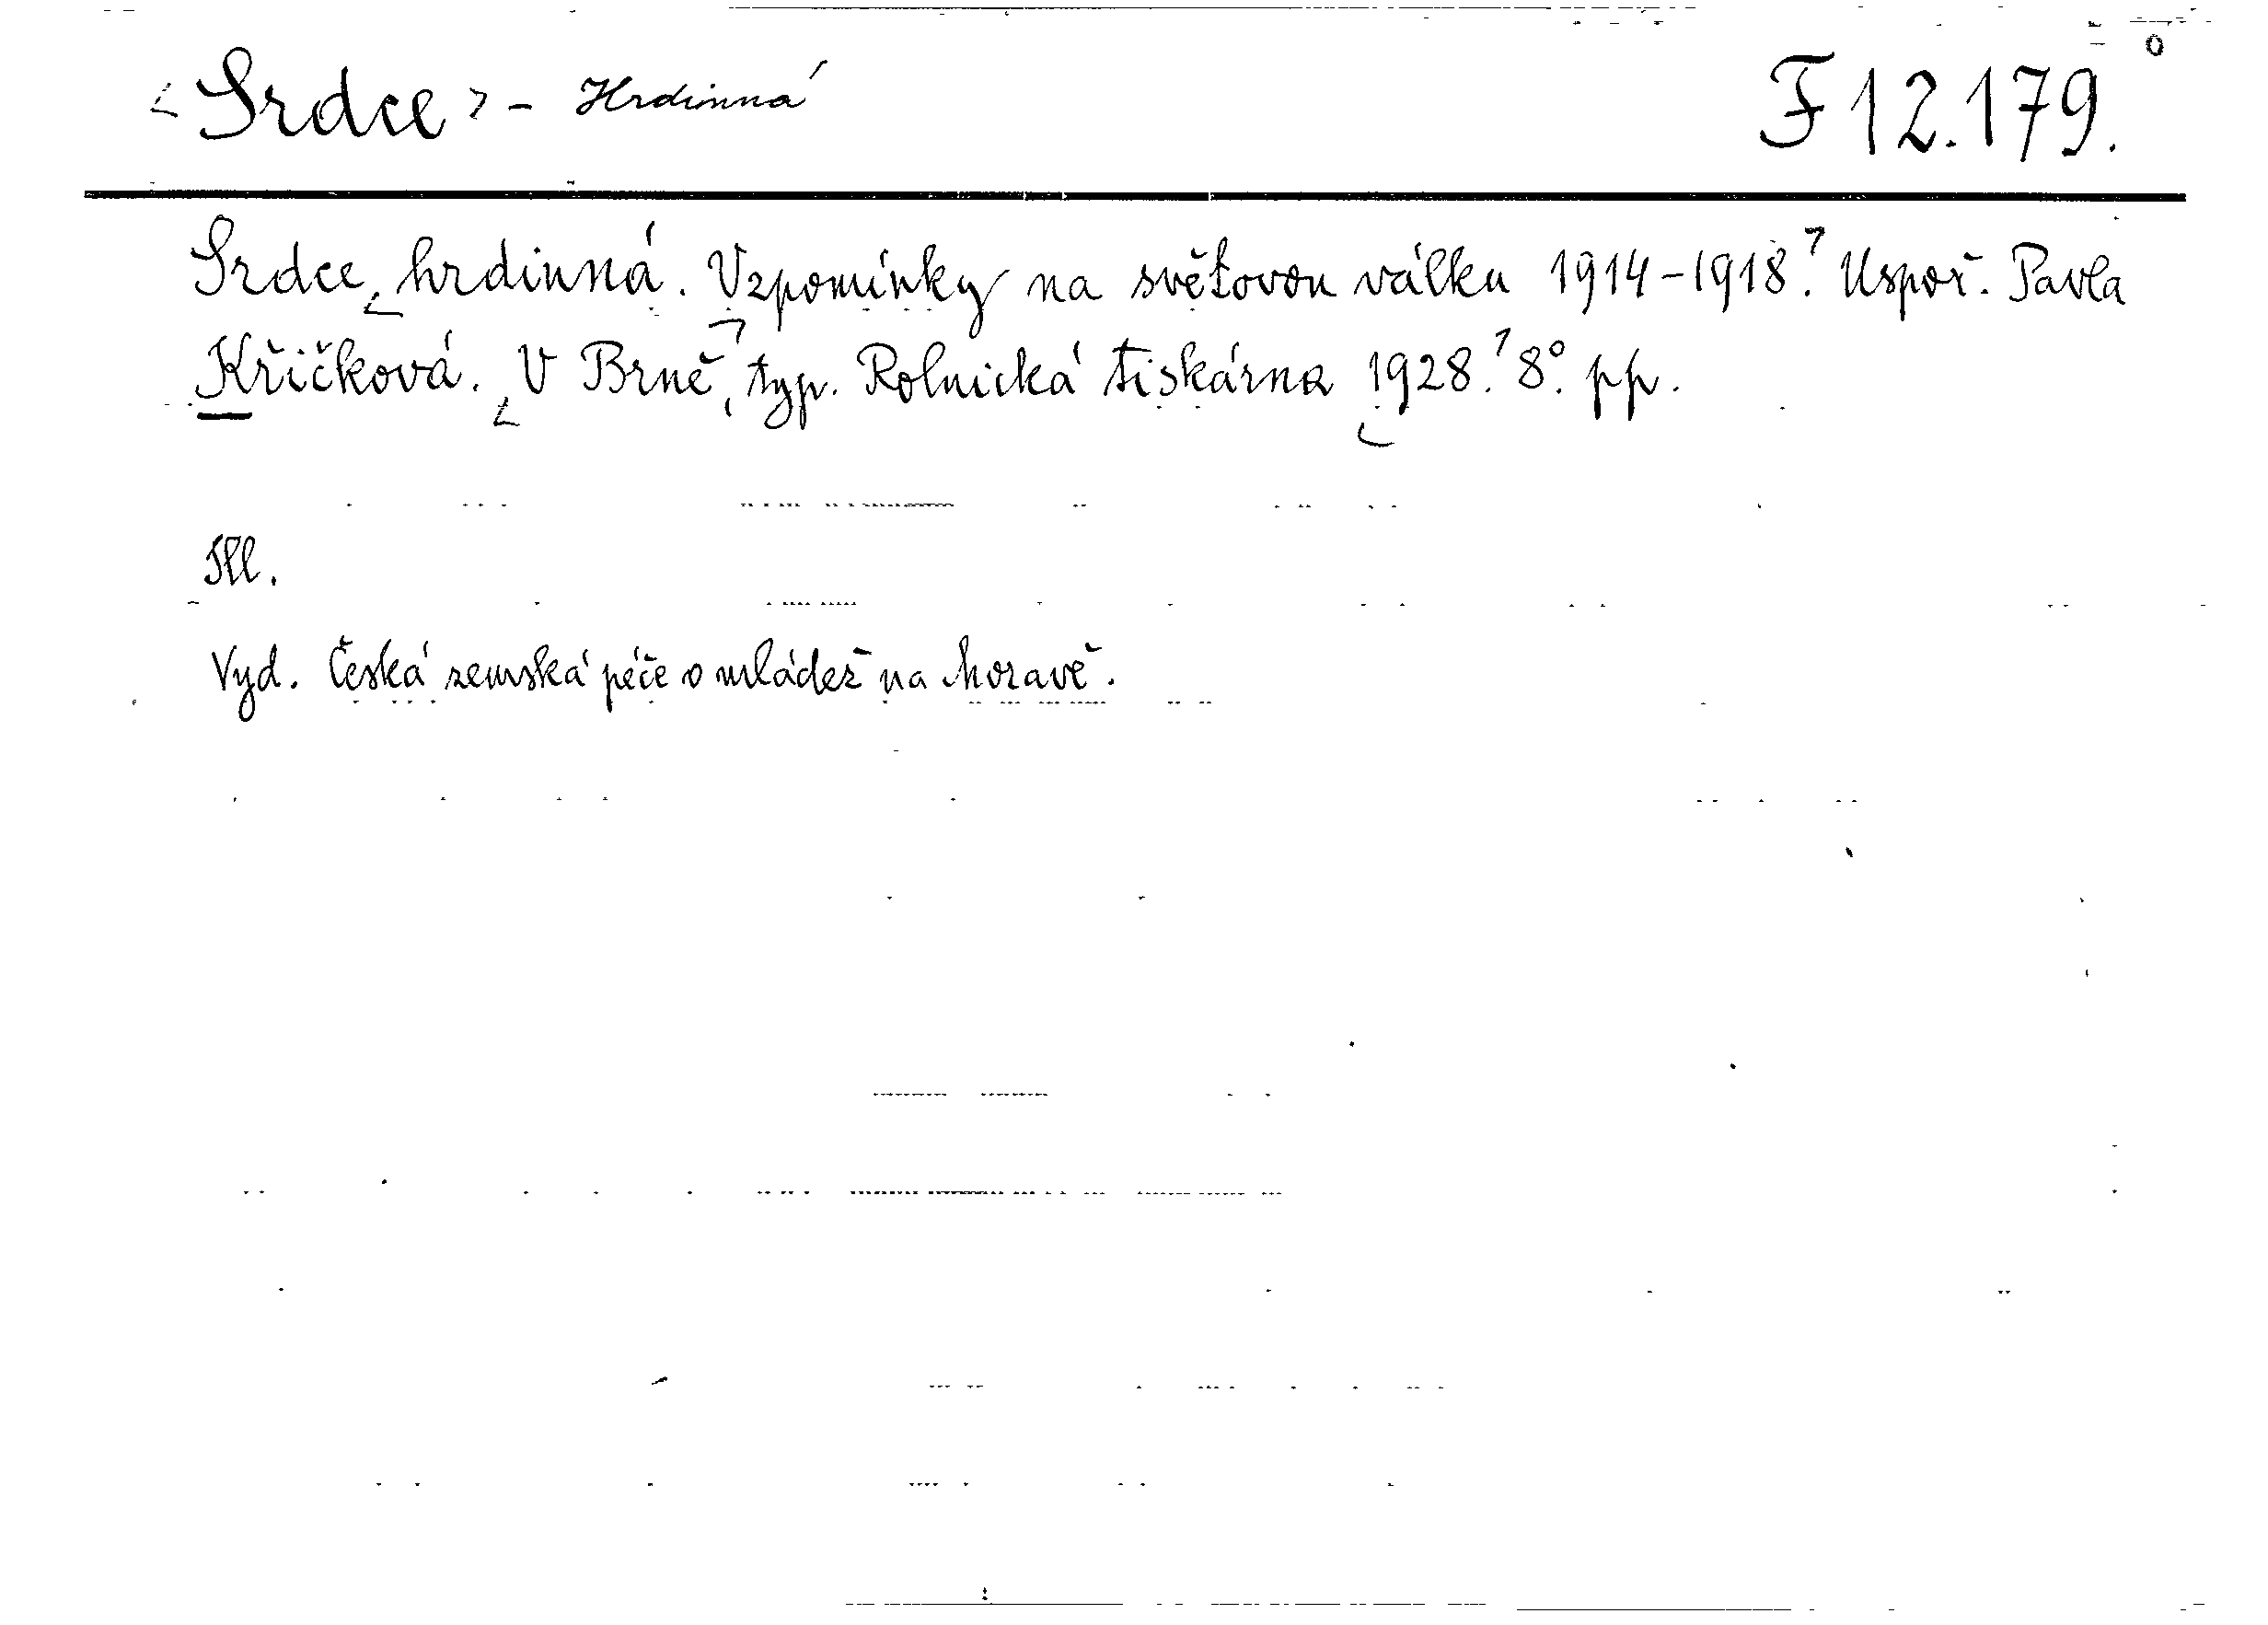 <Srdce> - Hrdinná F 12.179.
Srdce hrdinná. Vzpomínky na světovou válku 1914-1918. Uspoř. Pavla
Křičková. V Brně, typ. Rolnická tiskárna 1928. 8°. pp.
Ill.
Vyd. Česká zemská péče o mládež na Moravě.